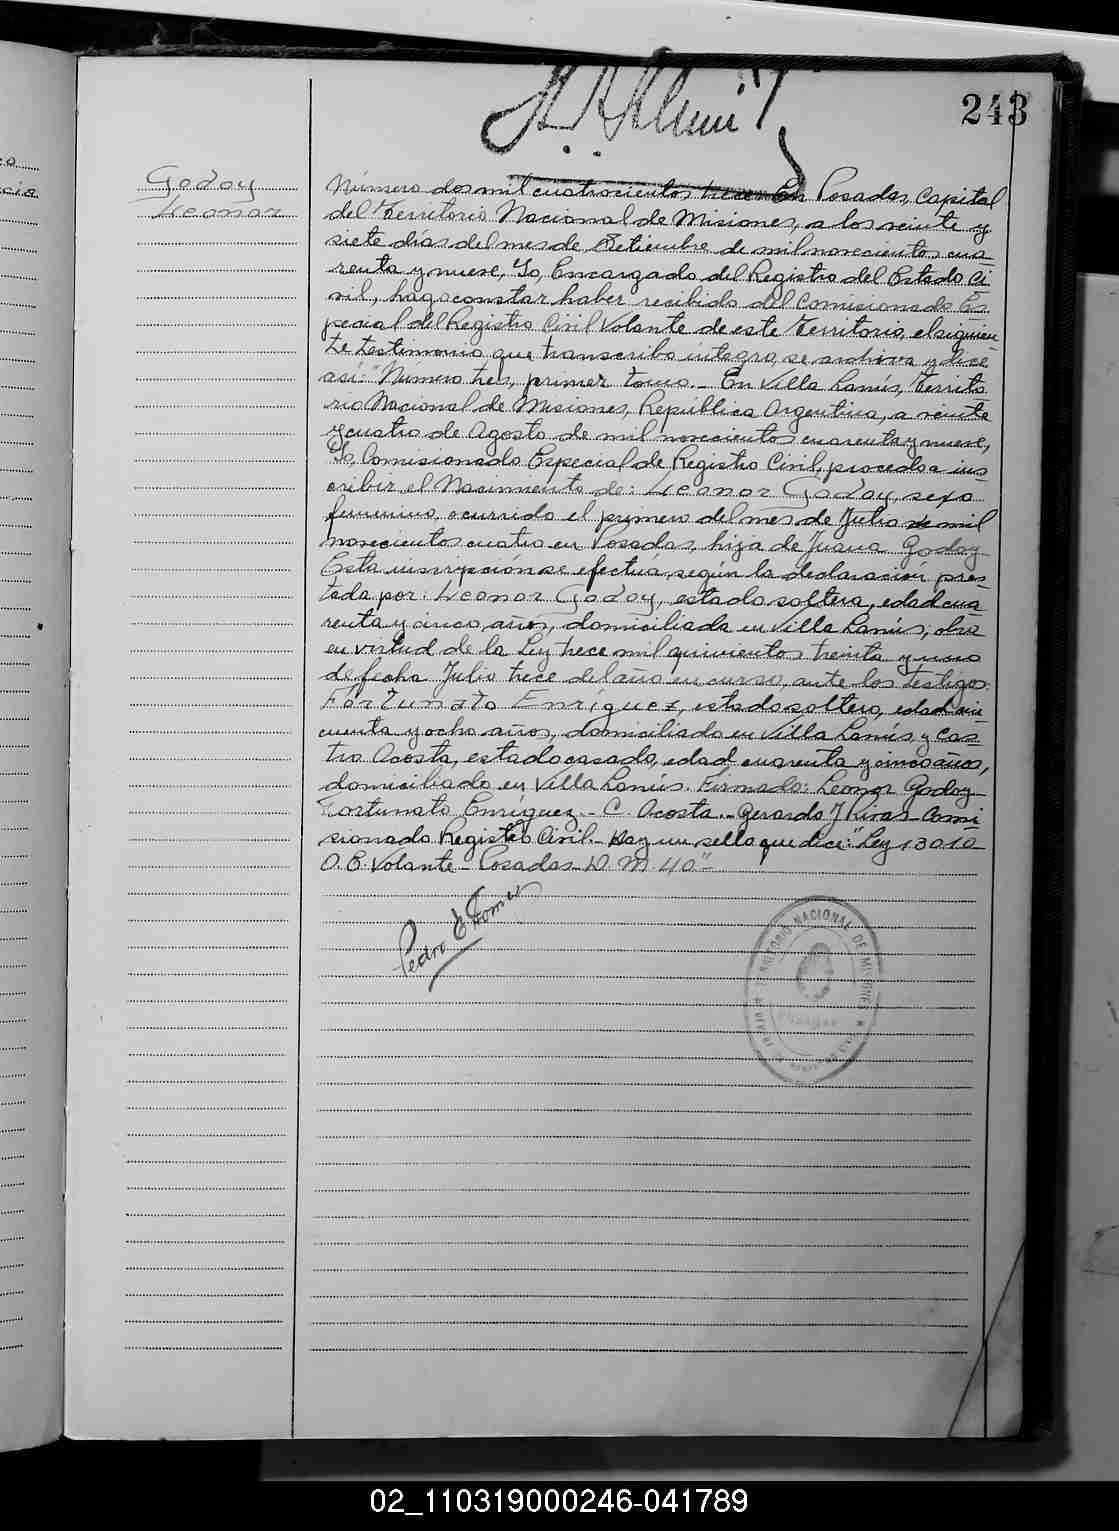 243
Godoy
Leonor
Número dos mil cuatrocientos trece En Posadas, Capital
del Territorio Nacional de Misiones, a los veinte y
siete días del mes de Setiembre de mil novecientos cua-
renta y nueve, Yo, Encargado del Registro del Estado Ci-
vil, hago constar haber recibido del Comisionado Es-
pecial del Registro Civil Volante de este Territorio, el siguien-
te testimonio que transcribo íntegro, se archiva y dice
así: "Número tres, primer tomo.- En Villa Lanús, Territo-
rio Nacional de Misiones, República Argentina, a veinte
y cuatro de Agosto de mil novecientos cuarenta y nueve,
Yo, Comisionado Especial de Registro Civil, procedo a ins-
cribir el Nacimiento de: Leonor Godoy, sexo
femenino, ocurrido el primero del mes de Julio de mil
novecientos cuatro en Posadas, hija de Juana Godoy-
Esta inscripción se efectúa, según la declaración pres-
tada por: Leonor Godoy, estado soltera, edad cua-
renta y cinco años, domiciliada en Villa Lanús; obra
en virtud de la Ley trece mil quinientos treinta y uno
de fecha Julio trece del año en curso, ante los testigos:
Fortunato Enríquez, estado soltero, edad cin-
cuenta y ocho años, domiciliado en Villa Lanús, y Cas-
tro Acosta, estado casado, edad cuarenta y cinco años,
domiciliado en Villa Lanús. Firmado: Leonor Godoy-
Fortunato Enríquez.- C. Acosta.- Gerardo J Rivas- Comi-
sionado Registro Civil.- Hay un sello que dice: "Ley 13010-
O.E. Volante- Posadas- D. M. 40"-
Pedro E.
TERRITORIO NACIONAL DE MISIONES
POSADAS
02_110319000246-041789